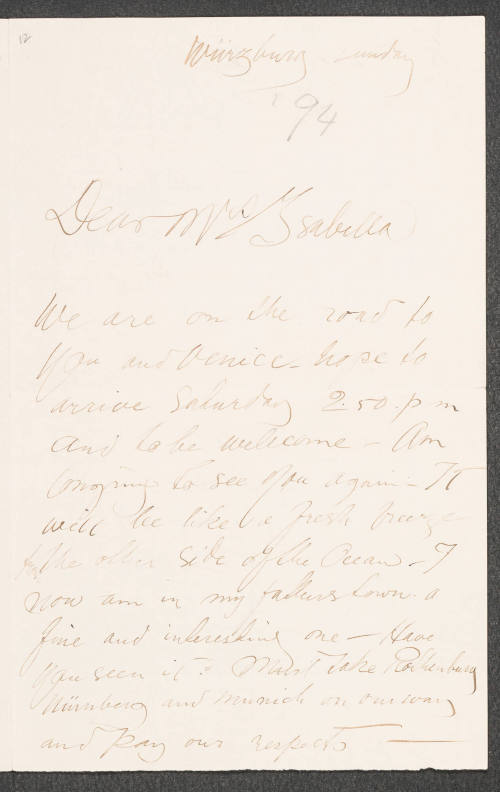 12
Würzburg Sunday
'94
Dear Mrs Isabella
We are on the road to
you and Venice - hope to
arrive Saturday 2.50. p m
and to be welcome - Am
longing to see you again - It
will be like a fresh breeze
from the other side of the Ocean - I
now am in my fathers town. a
fine and interesting one - Have
you seen it? Must take Rothenburg
Nürnberg and Munich on our way
and pay our respects —